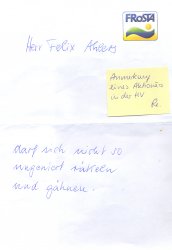 FRoSTA
Herr Felix Ahlers
Anmerkung
eines Aktionärs
in der HV
darf sich nicht so
ungeniert räkeln
und gähnen.